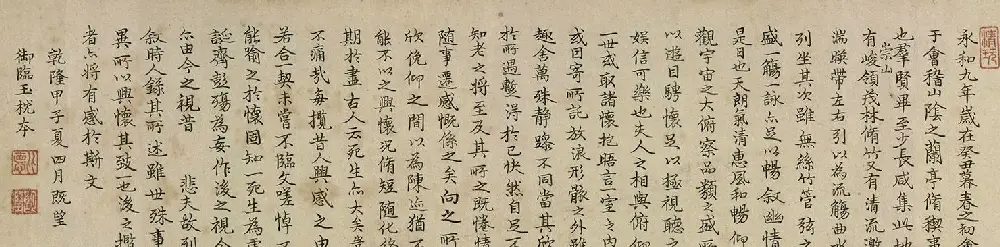 永和九年歲在癸丑暮春之初會
于會稽山陰之蘭亭脩稧
也羣賢畢至少長咸集此地
崇山
有峻領茂林脩竹又有清流激
湍暎帶左右引以為流觴曲水
列坐其次雖無絲竹管弦之
盛一觴一詠亦足以暢叙幽情
是日也天朗氣清惠風和暢仰
觀宇宙之大俯察品類之盛所
以遊目騁懷足以極視聽之
娛信可樂也夫人之相與俯仰
一世或取諸懷抱悟言一室之內
或因寄所託放浪形骸之外雖
趣舍萬殊靜躁不同當其欣
於所遇暫得於己快然自足不
知老之將至及其所之既惓情
隨事遷感慨係之矣向之所
欣俛仰之間以為陳迹猶不
能不以之興懷況脩短隨化終
期於盡古人云死生亦大矣豈
不痛哉每攬昔人興感之由
若合一契未嘗不臨文嗟悼不
能喻之於懷固知一死生為虛
誕齊彭殤為妄作後之視今
亦由今之視昔 悲夫故列
叙時人錄其所述雖世殊事
異所以興懷其致一也後之攬
者亦將有感於斯文
乾隆甲子夏四月既望
御臨玉枕本